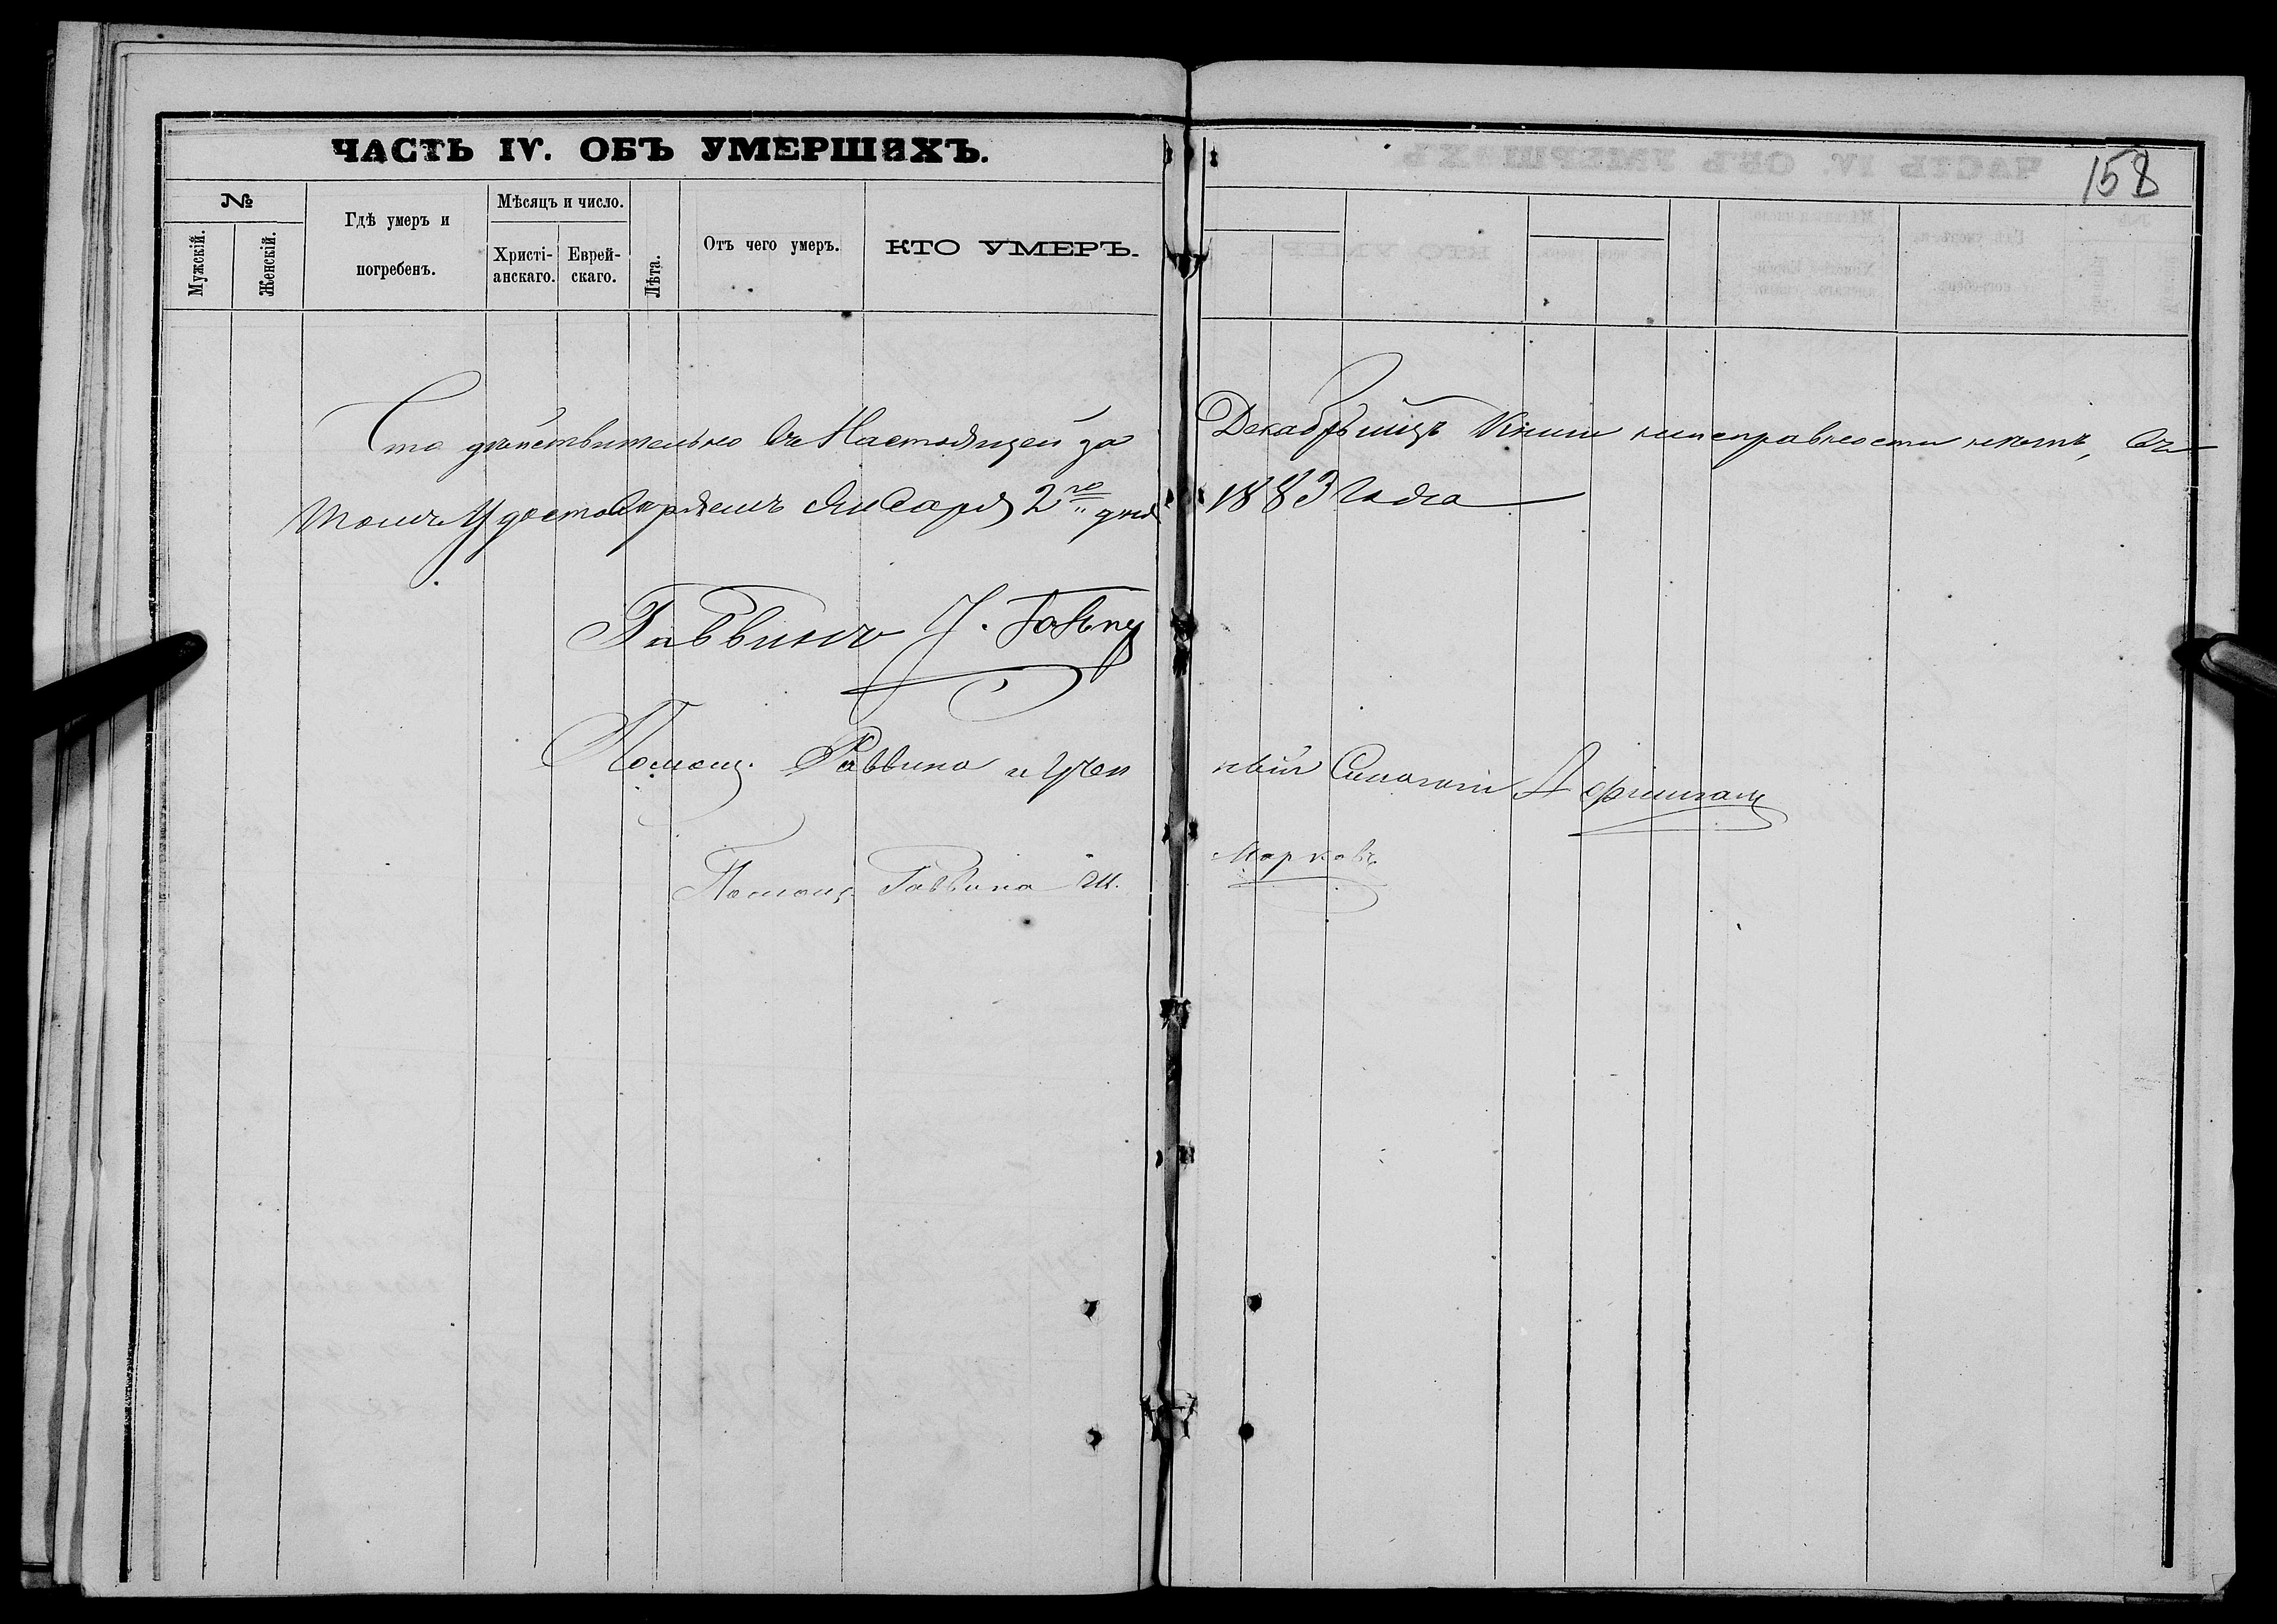 ЧАСТЬ IV. ОБЪ УМЕРШИХЪ.
158
№
Мужскій.
Женскій.
Гдѣ умеръ и
погребенъ.
Мѣсяцъ и число.
Христі-
анскаго.
Еврей-
скаго.
Лѣта.
Отъ чего умеръ.
КТО УМЕРЪ.
Что дѣйствительно въ Настоящей за Декабрь мцъ Книги неисправности нѣтъ, въ
томъ Удостовѣряемъ Января 2го дня 1883 Года
Раввинъ
Помощ. Раввина и Учен
Помощ. Раввина М. Марковъ